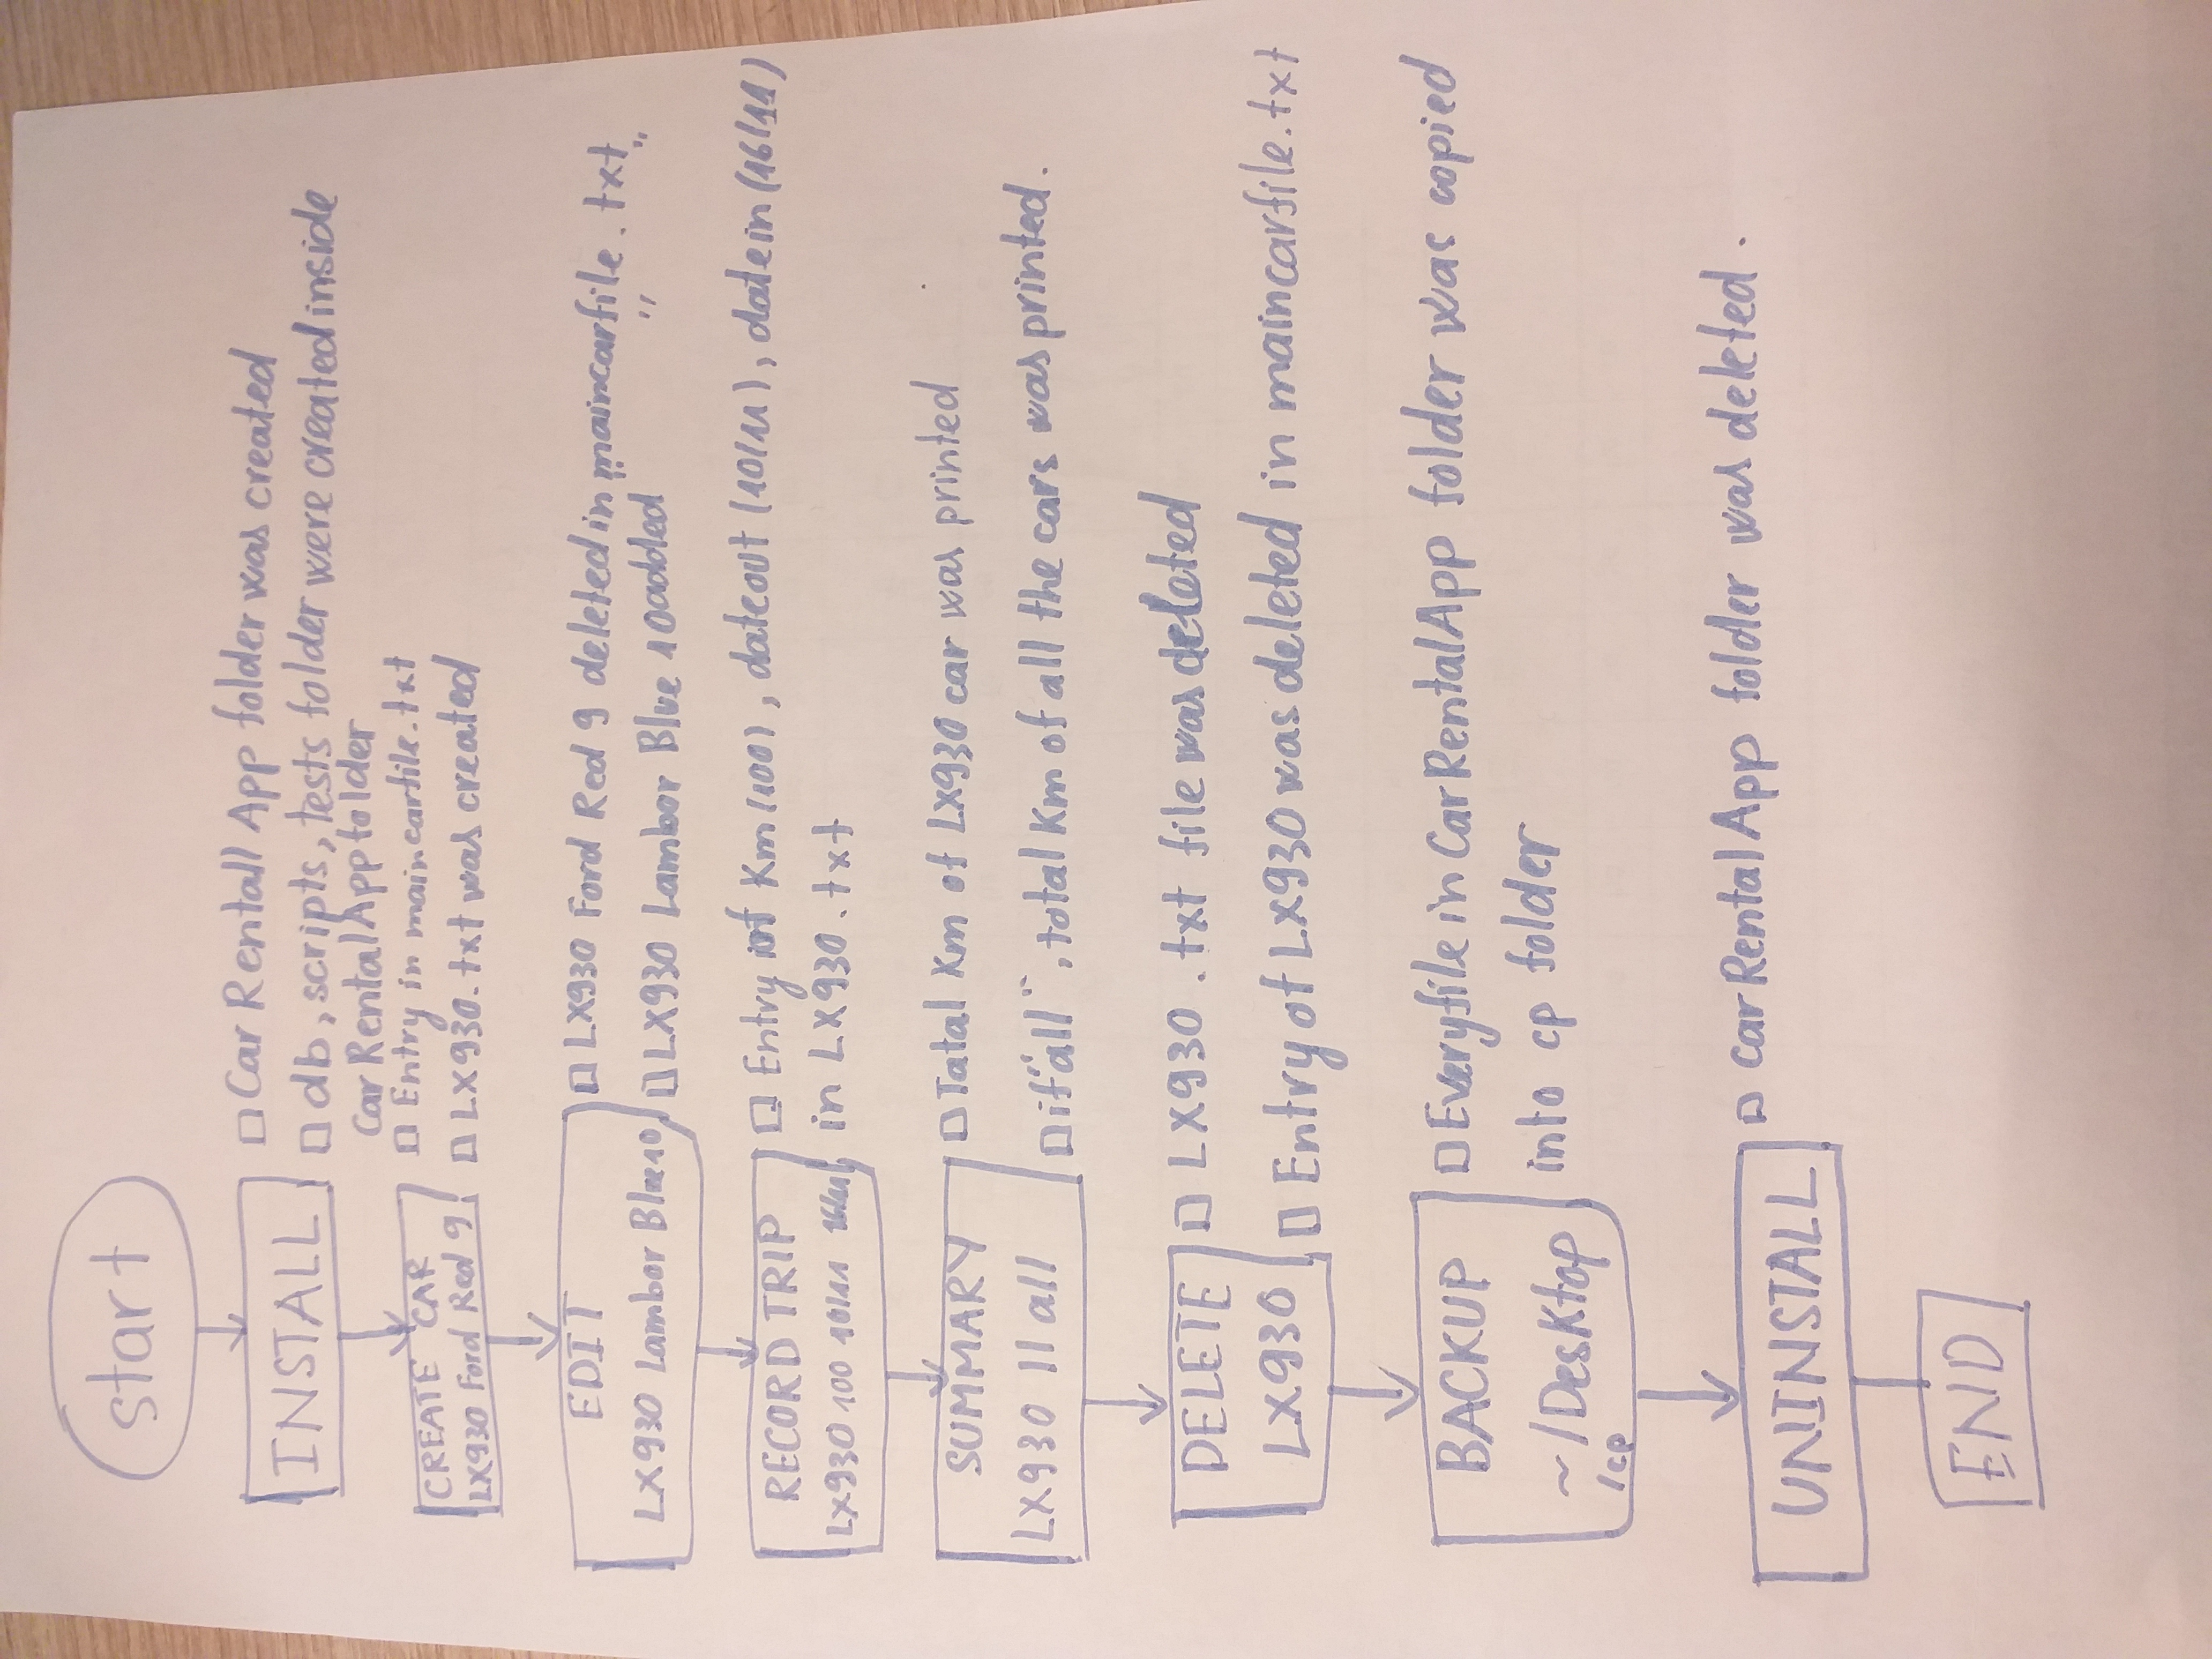 Start
INSTALL
□ Car Rentall App folder was created
□ db, scripts, tests folder were created inside
Car Rental App folder
CREATE CAR
LX930 Ford Red 9
□ Entry in maincarfile.txt
□ LX930.txt was created
EDIT
LX930 Lambor Blue 10
□ LX930 Ford Red 9 deleted in "maincarfile.txt"
□ LX930 Lambor Blue 10 added
RECORD TRIP
LX930 100 10/11
□ Entry of Km(100), dateout (10/11), datein (16/11)
in LX930.txt
SUMMARY
LX930 || all
□ Tatal Km of LX930 car was printed
□ if "all", total Km of all the cars was printed.
DELETE
LX930
□ LX930.txt file was deleted
□ Entry of LX930 was deleted in maincarfile.txt
BACKUP
~/Desktop
/cp
□ Every file in CarRentalApp folder was copied
into cp folder
UNINSTALL
□ carRentalApp folder was deleted.
END